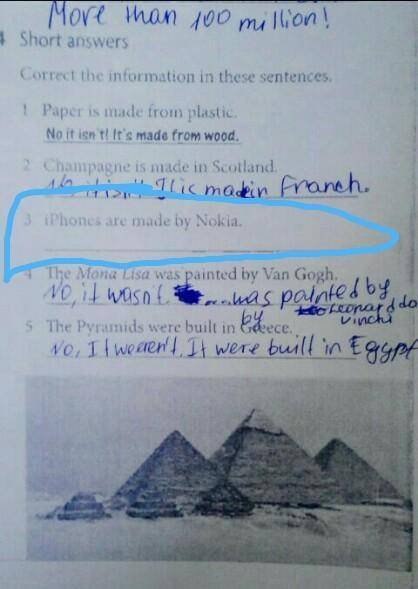 More than 100 million!
4 Short answers
Correct the information in these sentences.
1 Paper is made from plastic.
No it isn't! It's made from wood.
2 Champagne is made in Scotland.
No it isn't. It is made in Franch.
3 iPhones are made by Nokia.
4 The Mona Lisa was painted by Van Gogh.
No, it wasn't. was painted by
by Leonarddo
vinchi
5 The Pyramids were built in Greece.
No, It weeren't. It were built in Egypt